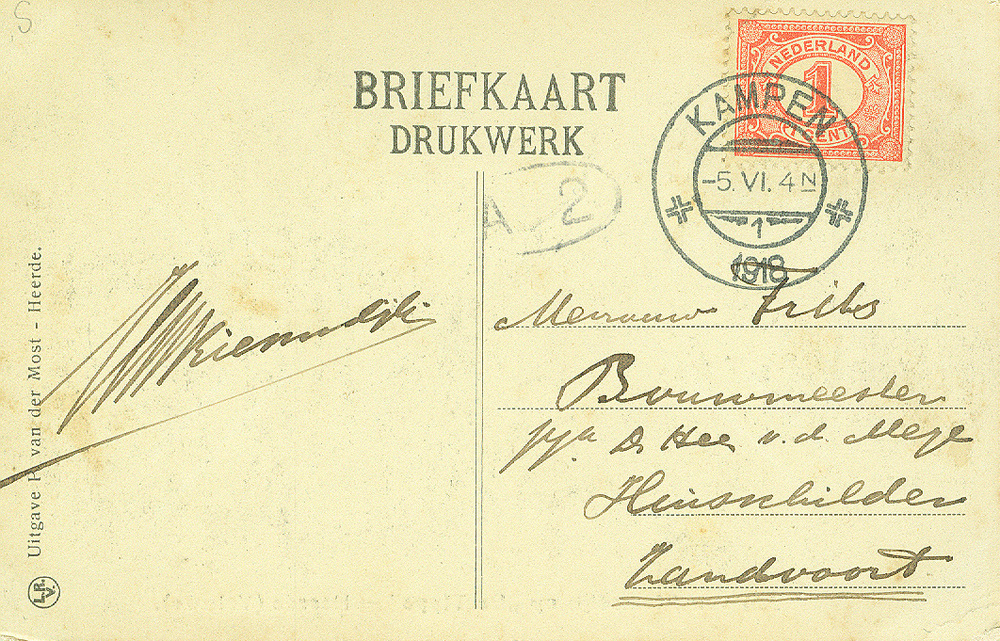 S
BRIEFKAART
DRUKWERK
NEDERLAND
1
1 CENT
KAMPEN
-5.VI.4N
1
1918
A 2
Mevrouw Frits
Bouwmeester
p/a De Heer v. d. Meije
Huisschilder
Zandvoort
Uitgave P. van der Most - Heerde.
L.R.V.